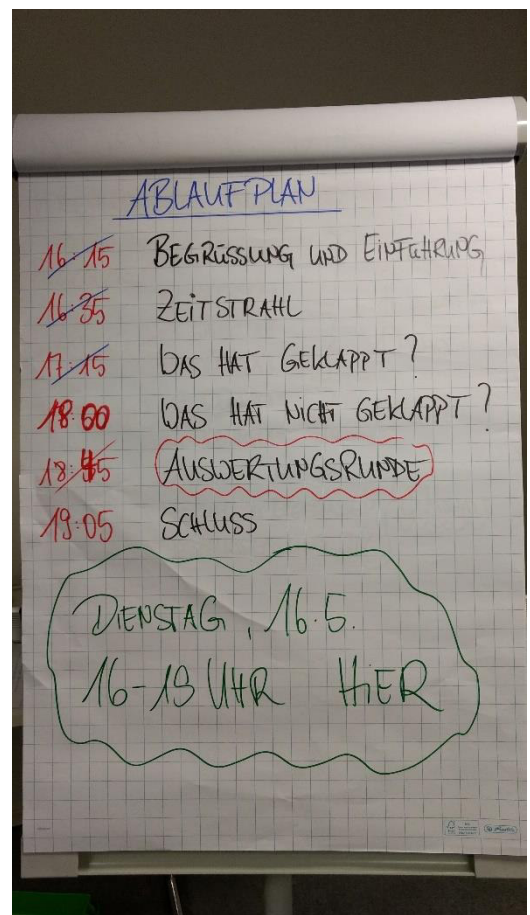 ABLAUFPLAN
16:15 BEGRÜSSUNG UND EINFÜHRUNG
16:35 ZEITSTRAHL
17:15 WAS HAT GEKLAPPT?
18:00 WAS HAT NICHT GEKLAPPT?
18:45 AUSWERTUNGSRUNDE
19:05 SCHLUSS
DIENSTAG, 16.5.
16-19 UHR HIER